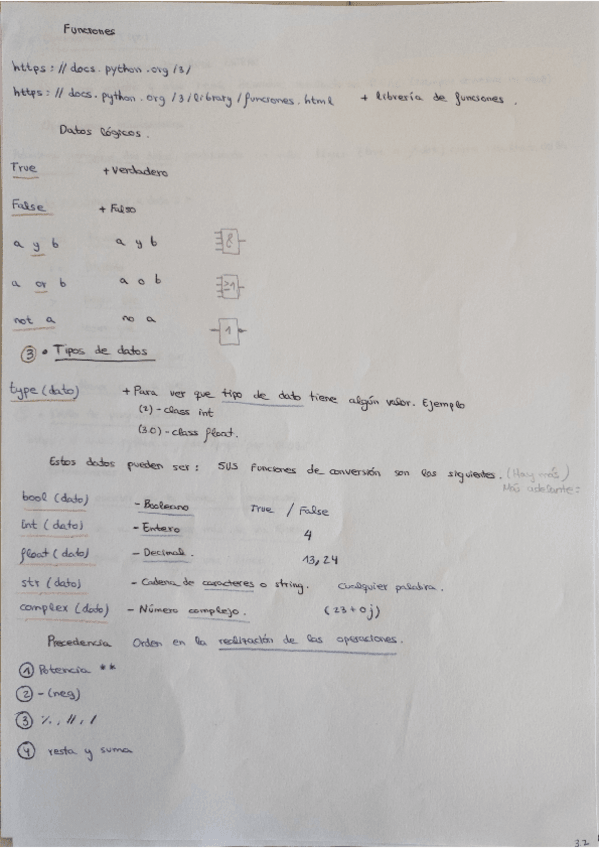 Funciones
https://docs.python.org/3/
https://docs.python.org/3/library/funciones.html + librería de funciones.
Datos lógicos.
True + Verdadero
False + Falso
a y b a y b &
a or b a o b ≥1
not a no a 1
③ • Tipos de datos
type (dato) + Para ver que tipo de dato tiene algún valor. Ejemplo
(2) - class int
(3.0) - class float.
Estos datos pueden ser: SUS funciones de conversión son las siguientes. (Hay más)
Más adelante:
bool (dato) - Booleano True / False
int (dato) - Entero 4
float (dato) - Decimal. 13,24
str (dato) - Cadena de caracteres o string. Cualquier palabra.
complex (dato) - Número complejo. (23+0j)
Precedencia Orden en la realización de las operaciones.
① Potencia **
② - (neg)
③ %, //, /
④ resta y suma
3.2